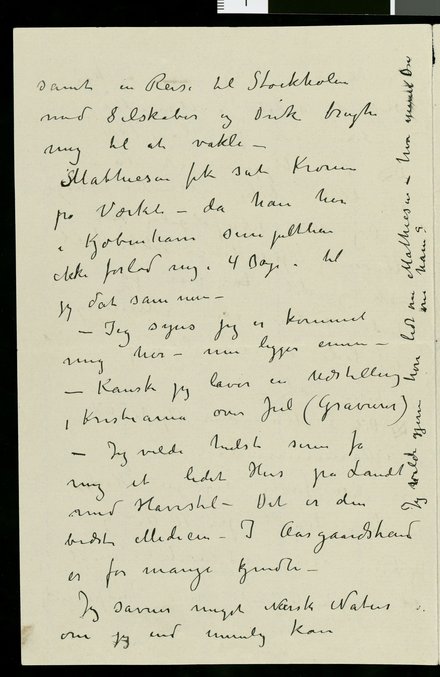 samt en Reise til Stockholm
med Selskaber og Drik bragte
mig til at vakle –
Mathiesen fik sat Kronen
på Værket – da han her
i Kjøbenhavn simpelthen
ikke forlod mig i 4 Dage. til
jeg dat sammen –
– Jeg synes jeg er kommet
mig her – men ligger ennu –
– Kanske jeg laver en Udstilling
i Kristiania over Jul (Gravurer)
– Jeg vilde helst snu få
mig et lidet Hus på Landet
med Havestel – Det er den
bedste Medicin – I Aasgaardstrand
er for mange Kjendte –
Jeg savner meget Norsk Natur
om jeg end nemlig kan
Jeg vilde gjerne høre lidt om Mathiesen – hva Du
om ham?